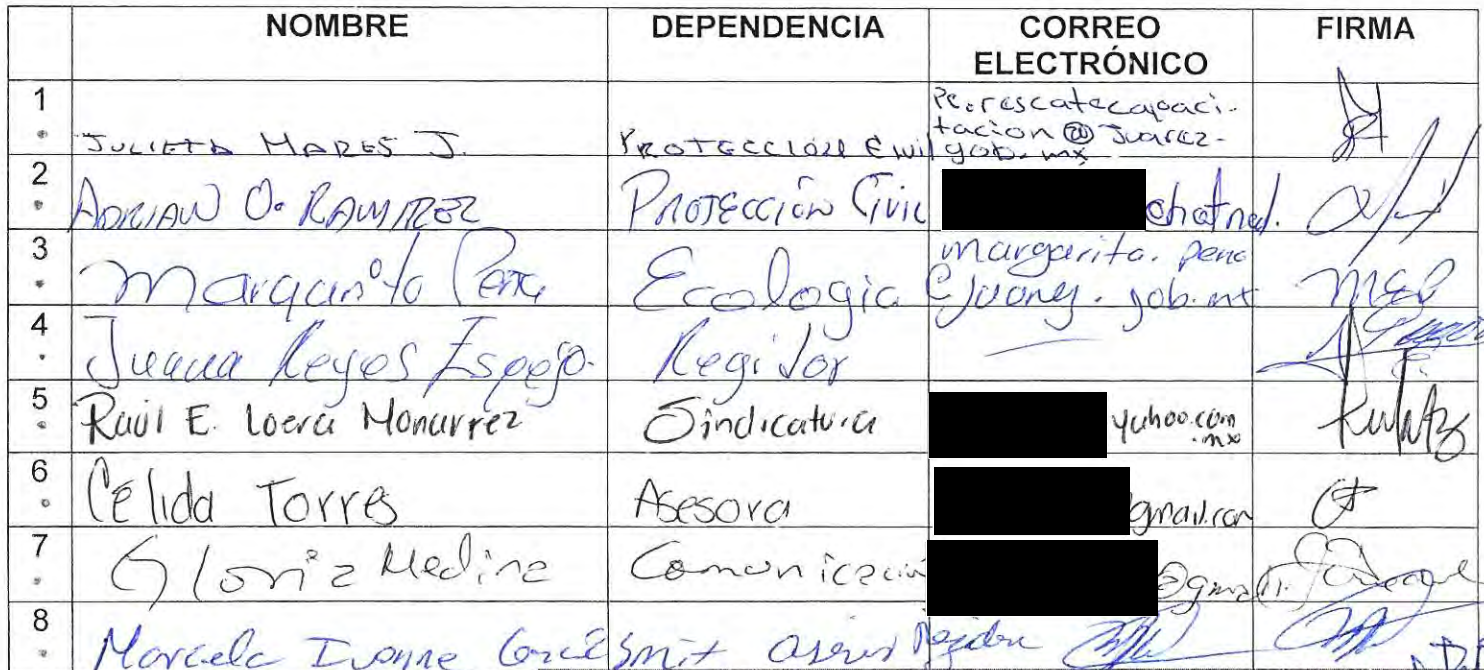 NOMBRE DEPENDENCIA CORREO ELECTRÓNICO FIRMA
1. JULIETA MARES J. PROTECCIÓN CIVIL pc.rescatecapaci-
tacion@juarez-
gob.mx
2. ADRIAN O. RAMIREZ PROTECCIÓN CIVIL
3. Margarita Peña Ecologia margarita.pena
gob.mx
4. Juana Reyes Espejo. Regidor
5. Raúl E. Loera Monarrez Sindicatura yahoo.com
.mx
6. Célida Torres Asesora gmail.com
7. Gloria Medina Comunicación @gmail.
8. Marcela Ivonne